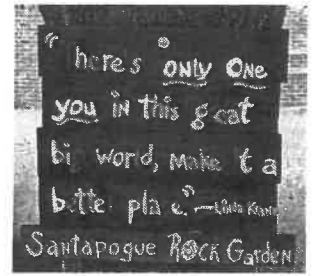 "heres only one
you in this g eat
bi word, make t a
bette pla e."
Santapogue Rock Garden